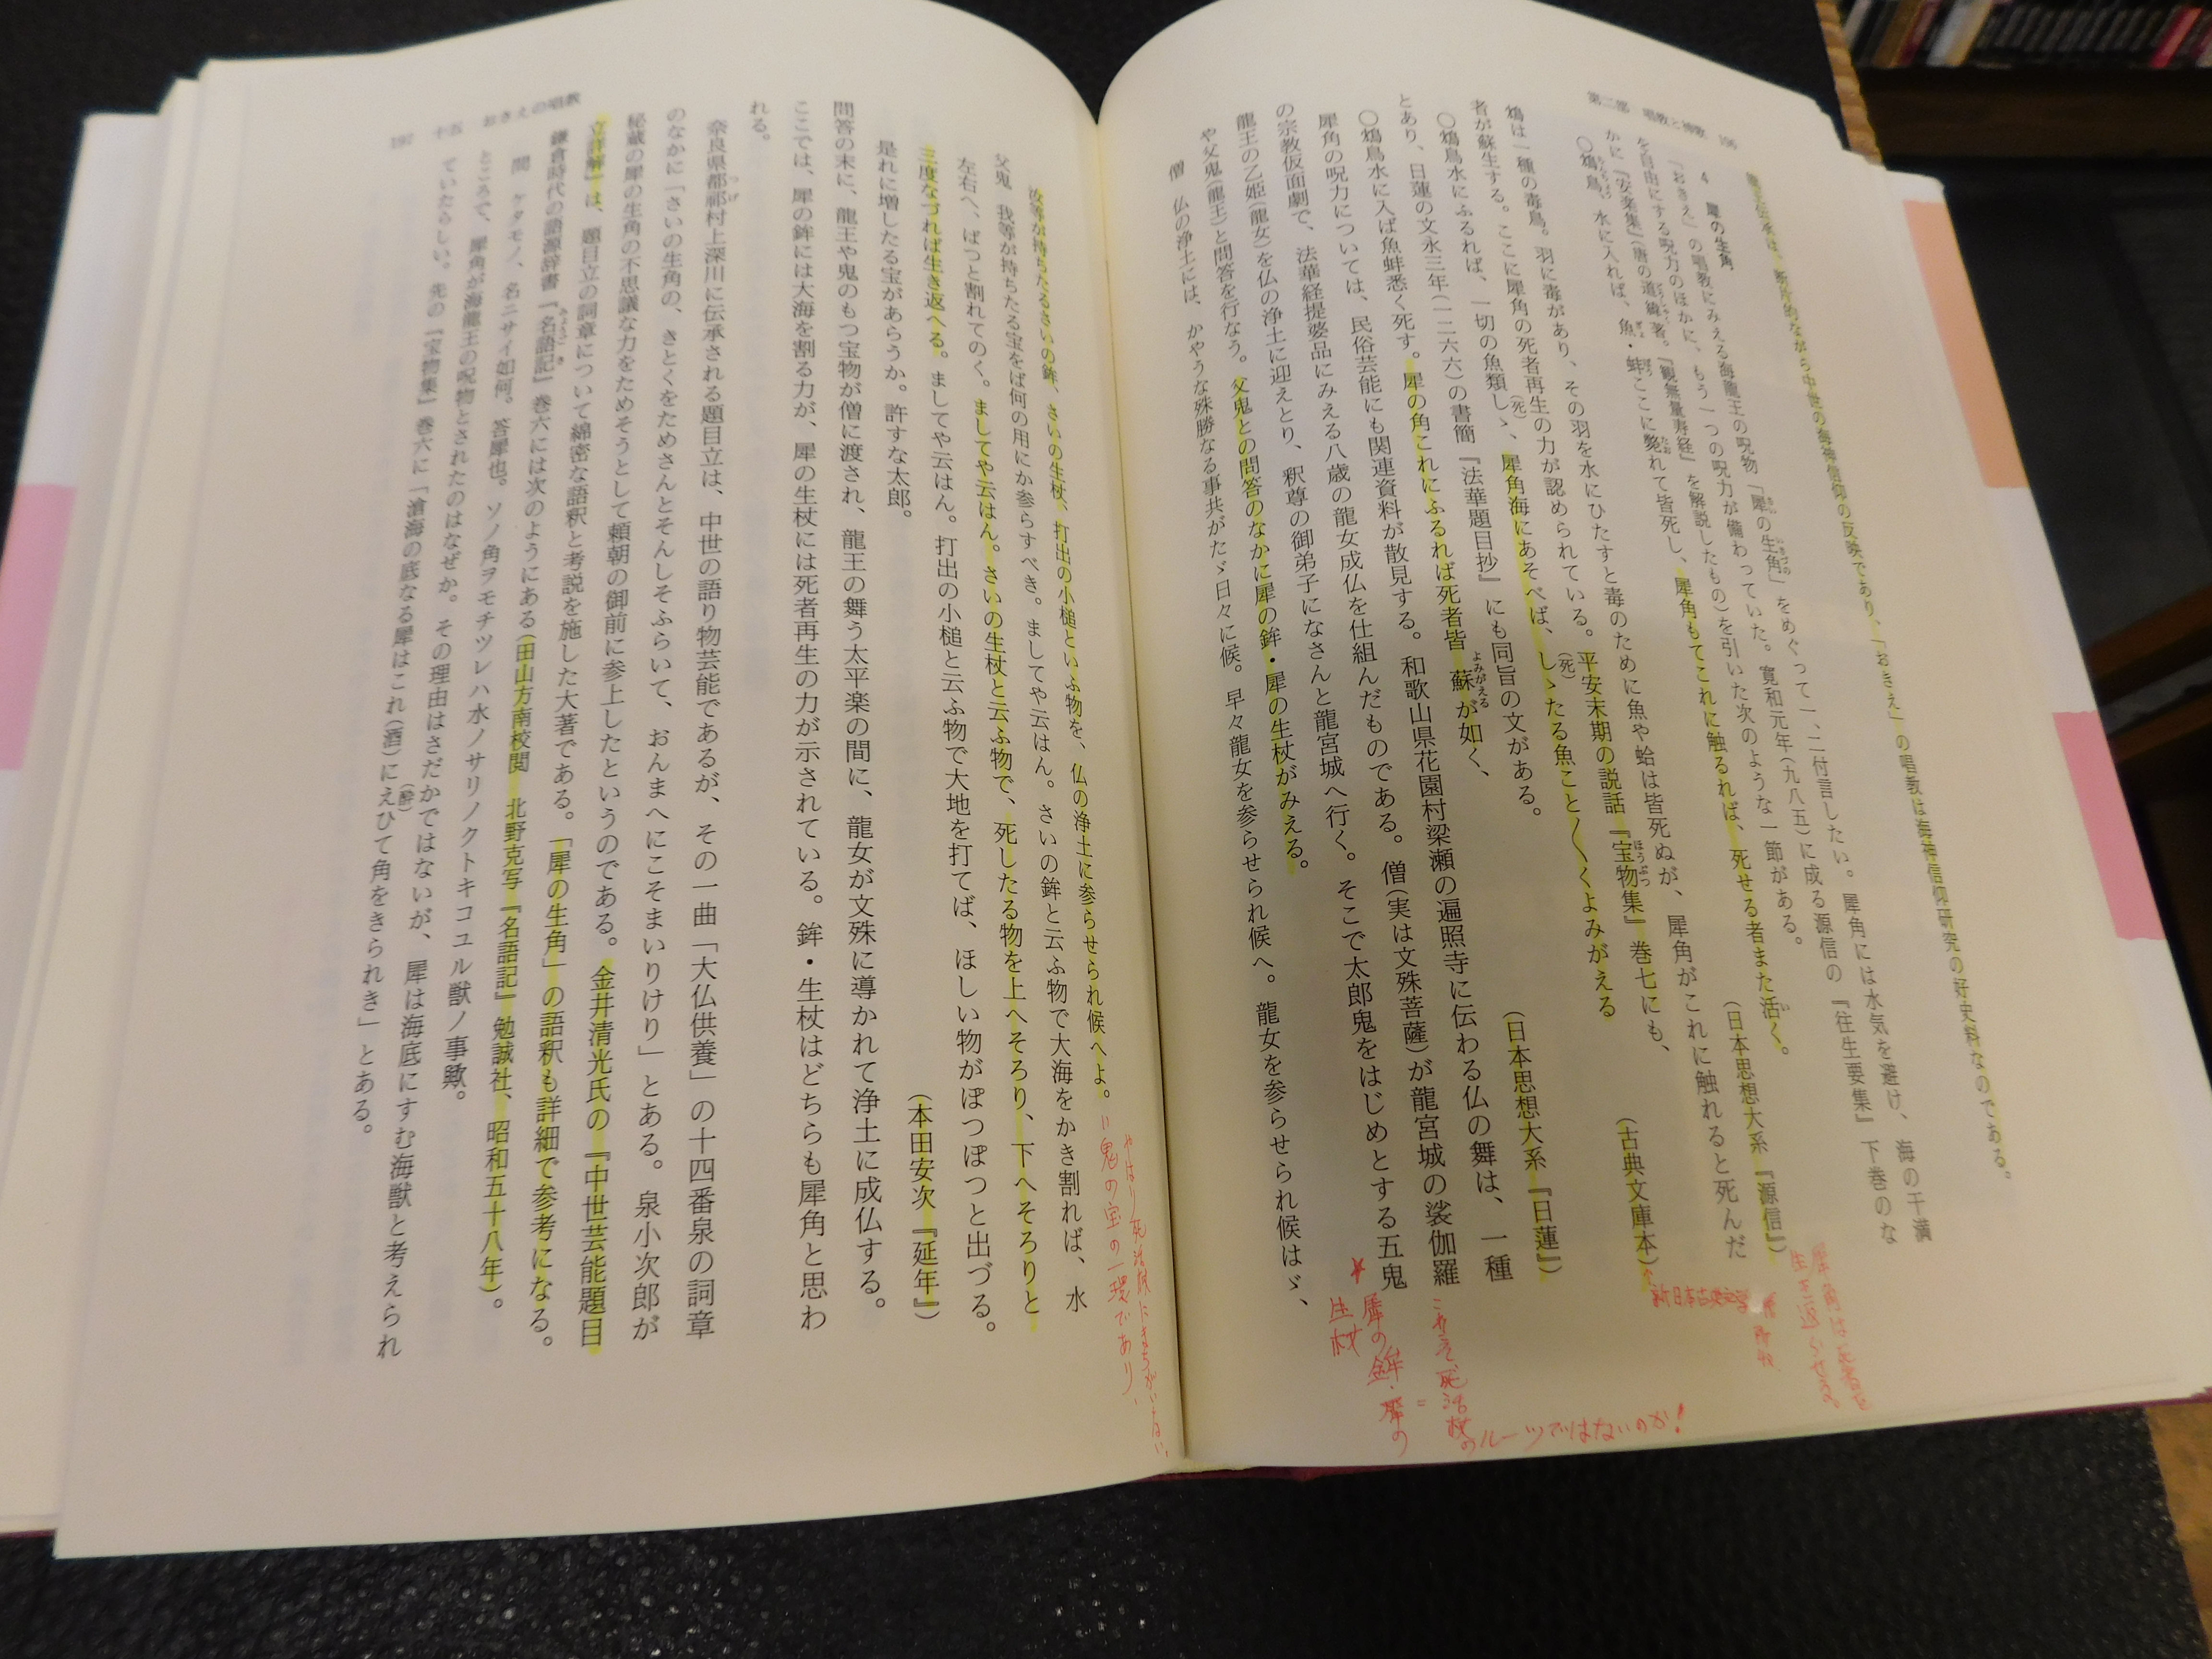 第二部　唱教と神歌　196
龍王伝承は、断片的ながら中世の海神信仰の反映であり、「おさえ」の唱教は海神信仰研究の好史料なのである。
4　犀の生角
「おさえ」の唱教にみえる海龍王の呪物「犀の生角」をめぐって一、二付言したい。犀角には水気を避け、海の干満
を自由にする呪力のほかに、もう一つの呪力が備わっていた。寛和元年(九八五)に成る源信の『往生要集』下巻のな
かに『安楽集』(唐の道綽著。『観無量寿経』を解説したもの)を引いた次のような一節がある。
〇鴆鳥、水に入れば、魚・蚌ここに斃れて皆死し、犀角もてこれに触るれば、死せる者また活く。
(日本思想大系『源信』)
鴆は一種の毒鳥。羽に毒があり、その羽を水にひたすと毒のために魚や蛤は皆死ぬが、犀角がこれに触れると死んだ
者が蘇生する。ここに犀角の死者再生の力が認められている。平安末期の説話『宝物集』巻七にも、
〇鴆鳥水にふるれば、一切の魚類しゝ、犀角海にあそべば、しゝたる魚こと〱くよみがえる
(古典文庫本)
とあり、日蓮の文永三年(一二六六)の書簡『法華題目抄』にも同旨の文がある。
〇鴆鳥水に入ば魚蚌悉く死す。犀の角これにふるれば死者皆蘇が如く、
(日本思想大系『日蓮』)
犀角の呪力については、民俗芸能にも関連資料が散見する。和歌山県花園村梁瀬の遍照寺に伝わる仏の舞は、一種
の宗教仮面劇で、法華経提婆品にみえる八歳の龍女成仏を仕組んだものである。僧(実は文殊菩薩)が龍宮城の裟伽羅
龍王の乙姫(龍女)を仏の浄土に迎えとり、釈尊の御弟子になさんと龍宮城へ行く。そこで太郎鬼をはじめとする五鬼
や父鬼(龍王)と問答を行なう。父鬼との問答のなかに犀の鉾・犀の生杖がみえる。
僧　仏の浄土には、かやうな殊勝なる事共がたゞ日々に候。早々龍女を参らせられ候へ。龍女を参らせられ候はゞ、
犀角は死者を
生き返らせる。
新日本古典文学
＊犀の鉾・犀の
生杖
これぞ、死活杖
のルーツではないのか!
197　十五　おさえの唱教
汝等が持ちたるさいの鉾、さいの生杖、打出の小槌といふ物を、仏の浄土に参らせられ候へよ。
父鬼　我等が持ちたる宝をば何の用にか参らすべき。ましてや云はん。さいの鉾と云ふ物で大海をかき割れば、水
左右へ、ばつと割れてのく。ましてや云はん。さいの生杖と云ふ物で、死したる物を上へそろり、下へそろりと
三度なづれば生き返へる。ましてや云はん。打出の小槌と云ふ物で大地を打てば、ほしい物がぽつぽつと出づる。
是れに増したる宝があらうか。許すな太郎。
(本田安次『延年』)
問答の末に、龍王や鬼のもつ宝物が僧に渡され、龍王の舞う太平楽の間に、龍女が文殊に導かれて浄土に成仏する。
ここでは、犀の鉾には大海を割る力が、犀の生杖には死者再生の力が示されている。鉾・生杖はどちらも犀角と思わ
れる。
奈良県都祁村上深川に伝承される題目立は、中世の語り物芸能であるが、その一曲「大仏供養」の十四番泉の詞章
のなかに「さいの生角の、きとくをためさんとそんしそふらいて、おんまへにこそまいりけり」とある。泉小次郎が
秘蔵の犀の生角の不思議な力をためそうとして頼朝の御前に参上したというのである。金井清光氏の『中世芸能題目
立詳解』は、題目立の詞章について綿密な語釈と考説を施した大著である。「犀の生角」の語釈も詳細で参考になる。
鎌倉時代の語源辞書『名語記』巻六には次のようにある(田山方南校閲　北野克写『名語記』勉誠社、昭和五十八年)。
問　ケダモノ、名ニサイ如何。答犀也。ソノ角ヲモチツレハ水ノサリノクトキコユル獣ノ事歟。
ところで、犀角が海龍王の呪物とされたのはなぜか。その理由はさだかではないが、犀は海底にすむ海獣と考えられ
ていたらしい。先の『宝物集』巻六に「滄海の底なる犀はこれ(酒)にえひて角をきられき」とある。
やはり死活杖にまちがいない。
鬼の宝の一環であり、